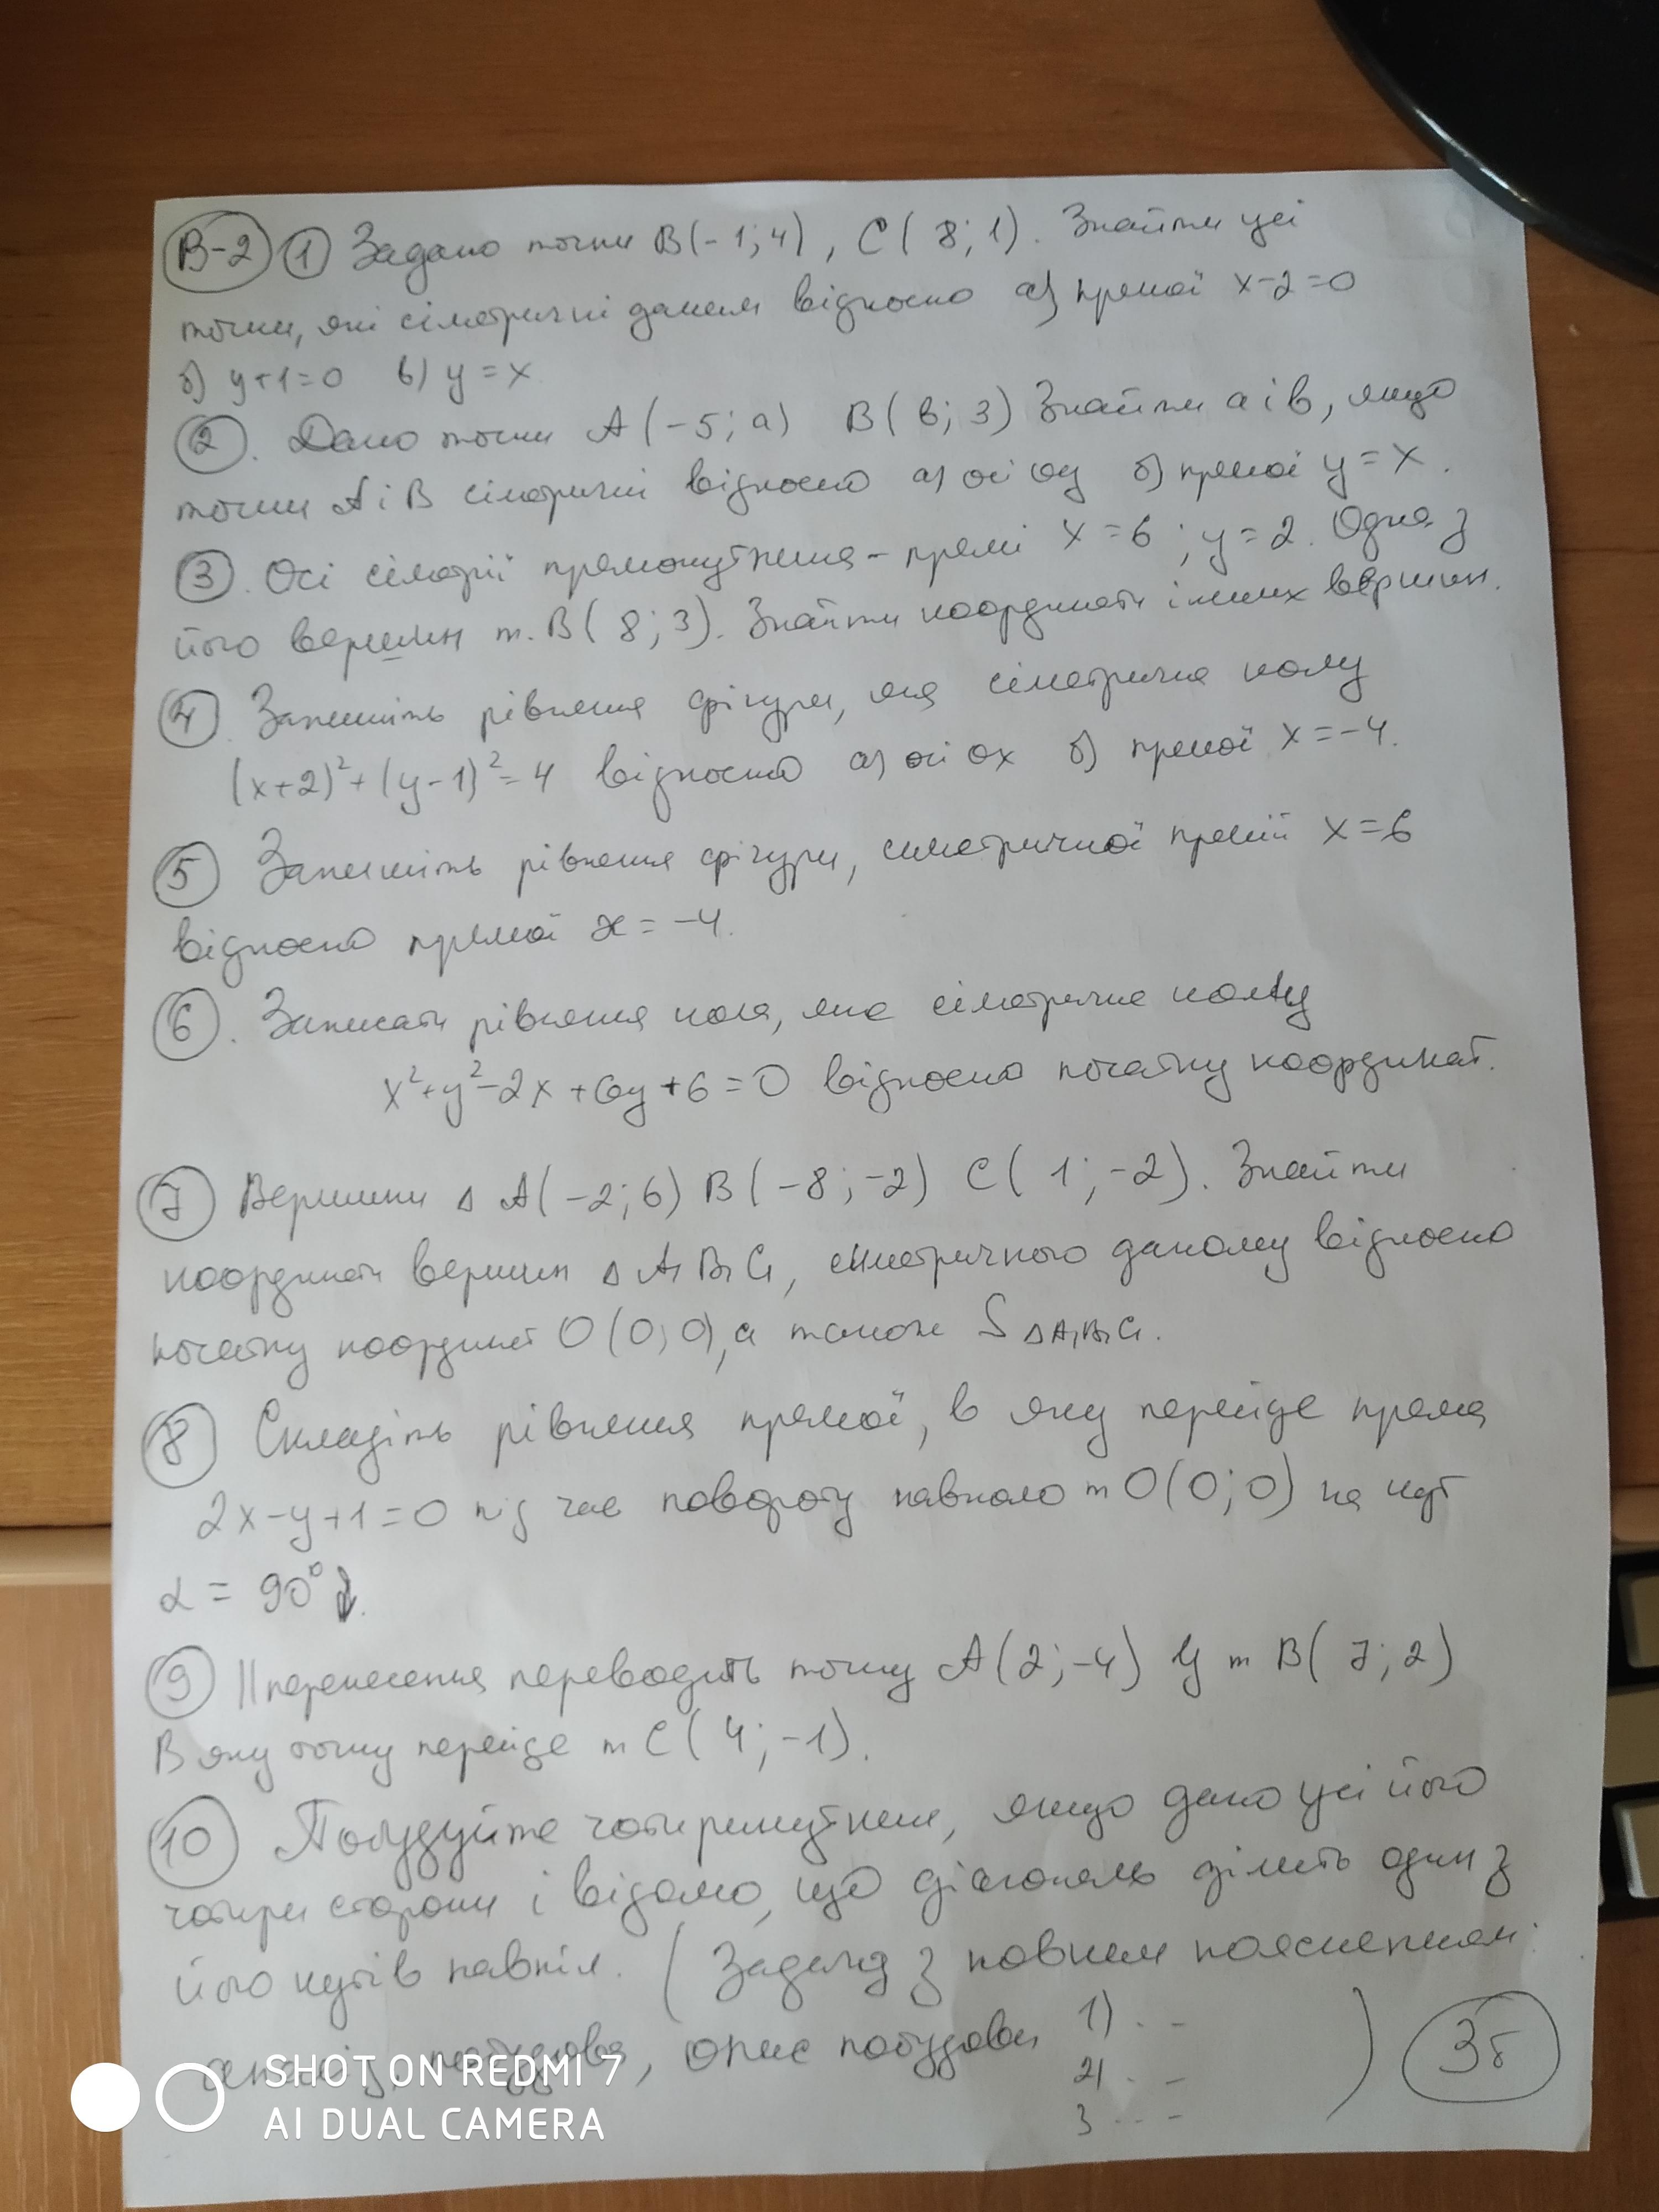 В-2 1 Задано точки B(-1; 4), C(8; 1). Знайти усі
точки, які сіметричні даним відносно а) прямої x-2=0
б) y+1=0 в) y=x
2. Дано точки A(-5; a) B(b; 3) Знайти a і b, якщо
точки A і B сіметричні відносно а) осі oy б) прямої y=x.
3. Осі сіметрії прямокутника - прямі x=6; y=2. Одна з
його вершин т. B(8; 3). Знайти координати інших вершин.
4. Запишіть рівняння фігури, яка сіметрична колу
(x+2)²+(y-1)²=4 відносно а) осі ox б) прямої x=-4.
5 Запишіть рівняння фігури, симетричної прямій x=6
відносно прямої x=-4.
6. Записати рівняння кола, яке сіметричне колу
x²+y²-2x+6y+6=0 відносно початку координат.
7 Вершини Δ A(-2; 6) B(-8; -2) C(1; -2). Знайти
координати вершин Δ A₁B₁C₁, симетричного даному відносно
початку координат O(0; 0), а також S ΔA₁B₁C₁.
8 Складіть рівняння прямої, в яку перейде пряма
2x-y+1=0 під час повороту навколо т O(0; 0) на кут
α = 90°
9 ||перенесення переводить точку A(2; -4) у т B(7; 2)
В яку точку перейде т C(4; -1).
10 Побудуйте чотирикутник, якщо дано усі його
чотири сторони і відомо, що діагональ ділить один з
його кутів навпіл. (Задача з повним поясненням:
аналіз, побудова, опис побудови 1) . . -
2) . -
3 . . . -
) 3б
SHOT ON REDMI 7
AI DUAL CAMERA